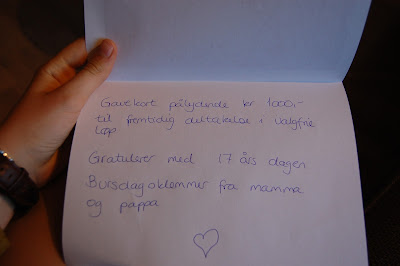 Gavekort pålydende kr 1000,-
til fremtidig deltakelse i valgfrie
løp
Gratulerer med 17 års dagen
Bursdagsklemmer fra mamma
og pappa